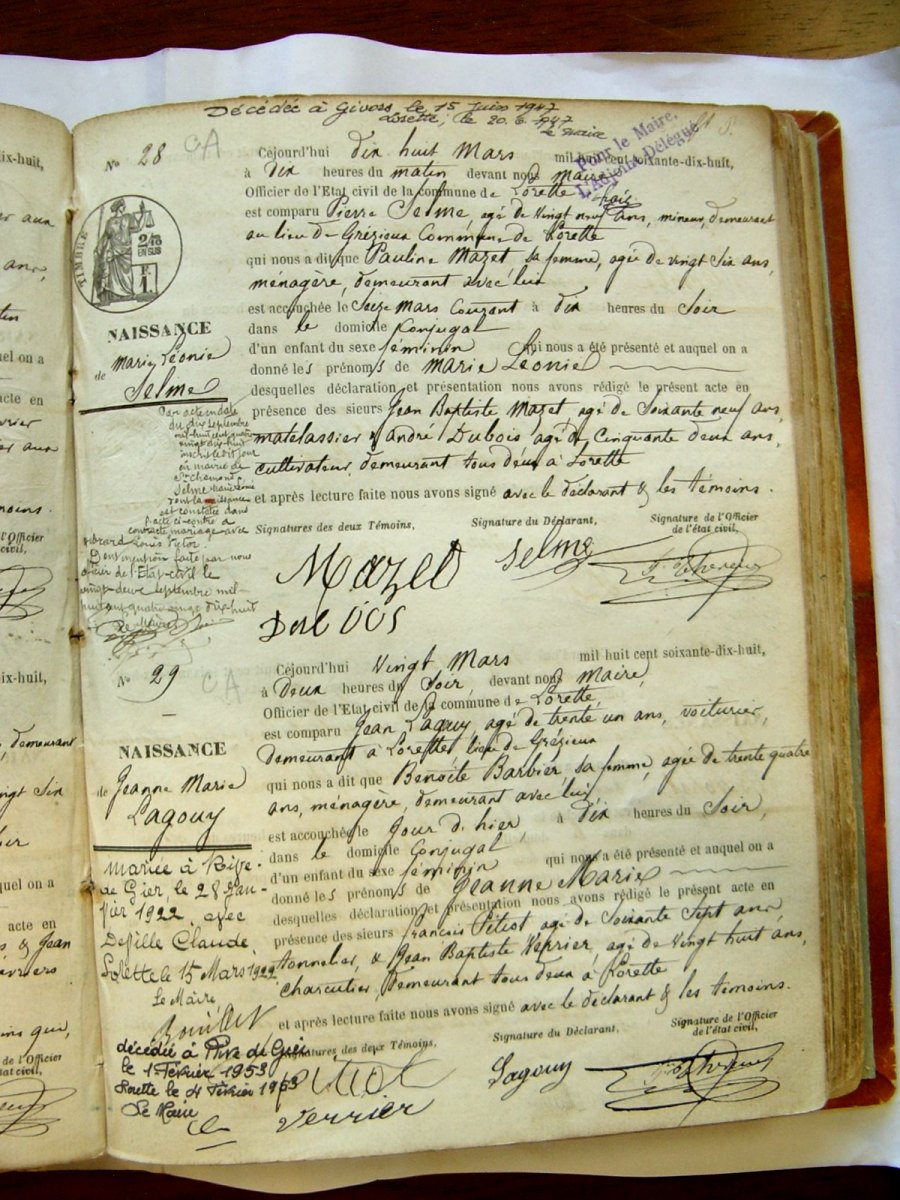 Décédée à Givors, le 15 Juin 1947
Lorette, le 20.6.1947
le maire
Pour le Maire,
L'Adjoint Délégué
No 28 CA
TIMBRE
NAISSANCE
de Marie Léonie
Selme
Par acte en date
du dix septembre
mil huit cent quatre
vingt dix huit
inscrit le dit jour
en mairie de
St Chamond
Selme Marie Léonie
dont la naissance
est constatée dans
l'acte ci-contre a
contracté mariage avec
Louis Victor.
Dont mention faite par nous
officier de l'Etat-civil le
vingt deux septembre mil
huit cent quatre vingt dix huit
Le Maire
Cejourd'hui dix huit Mars mil huit cent soixante-dix-huit,
à Dix heures du matin devant nous Maire
Officier de l'Etat civil de la commune de Lorette
est comparu Pierre Selme, agé de Vingt neuf ans, mineur, demeurant
au lieu de Grézieux Commune de Lorette
qui nous a dit que Pauline Mazet sa femme, agée de vingt six ans,
ménagère, demeurant avec lui
est accouchée le Seize Mars Courant à dix heures du Soir
dans le domicile Conjugal
d'un enfant du sexe féminin qui nous a été présenté et auquel on a
donné les prénoms de Marie Léonie
desquelles déclaration et présentation nous avons rédigé le présent acte en
présence des sieurs Jean Baptiste Mazet, agé de Soixante neuf ans,
matelassier & André Dubois agé de Cinquante deux ans,
cultivateur, demeurant tous deux à Lorette
et après lecture faite nous avons signé avec le déclarant & les témoins.
Signatures des deux Témoins, Signature du Déclarant, Signature de l'Officier
de l'état civil,
Mazet Selme
Dubois
No 29 CA
NAISSANCE
de Jeanne Marie
Lagouy
mariée à Rive-
de Gier, le 28 Jan-
vier 1922, avec
Defille Claude
Lorette le 15 Mars 1922
Le Maire
décédée à Rive de Gier
le 1 Février 1953
Lorette le 4 Février 1953
Le Maire
Cejourd'hui Vingt Mars mil huit cent soixante-dix-huit,
à Deux heures du Soir, devant nous Maire,
Officier de l'Etat civil de la commune de Lorette,
est comparu Jean Lagouy, agé de trente un ans, voiturier,
Demeurant à Lorette, lieu de Grézieux
qui nous a dit que Benoîte Barbier sa femme, agée de trente quatre
ans, ménagère, demeurant avec lui
est accouchée le Jour d'hier, à dix heures du Soir,
dans le domicile Conjugal
d'un enfant du sexe féminin qui nous a été présenté et auquel on a
donné les prénoms de Jeanne Marie
desquelles déclaration et présentation nous avons rédigé le présent acte en
présence des sieurs François Pitiot agé de Soixante Sept ans,
tonnelier, & Jean Baptiste Verrier, agé de Vingt huit ans,
charcutier, Demeurant tous deux à Lorette
et après lecture faite nous avons signé avec le déclarant & les témoins.
Signatures des deux Témoins, Signature du Déclarant, Signature de l'Officier
de l'état civil,
Pitiot Lagouy
Verrier